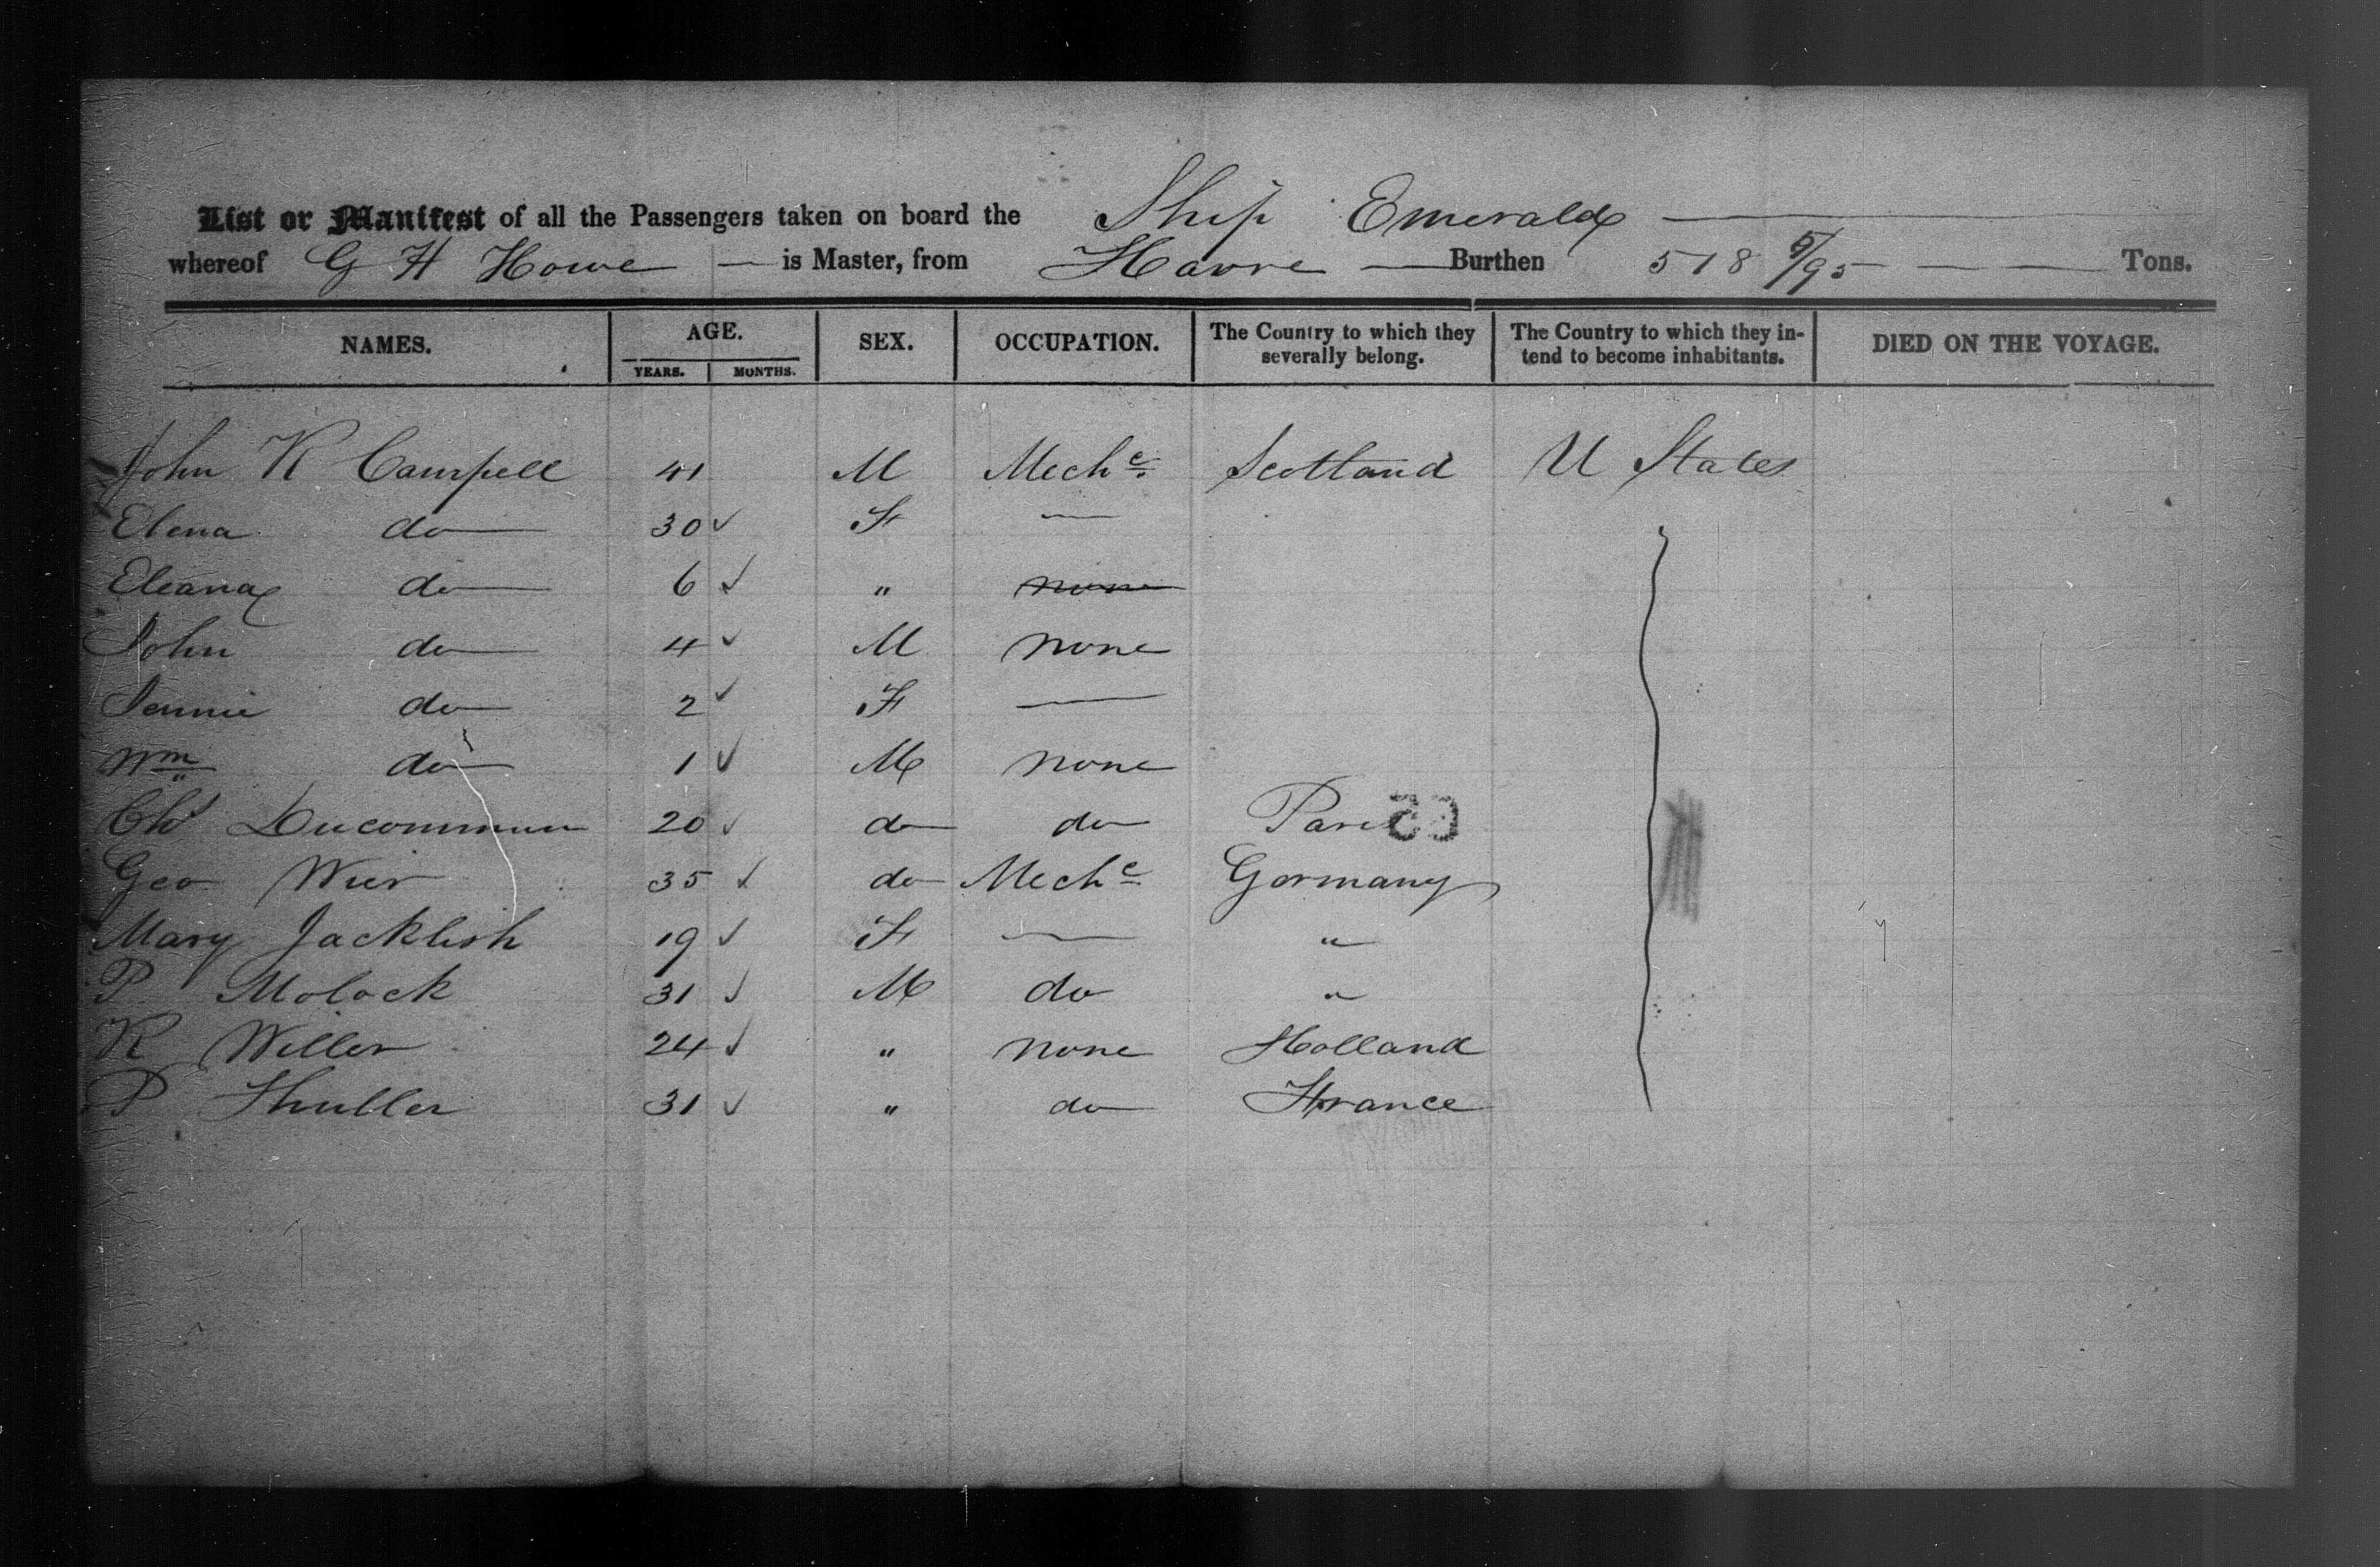 List or Manifest of all the Passengers taken on board the Ship Emerald
whereof G H Howe is Master, from Havre Burthen 518 5/95 Tons.
NAMES. AGE. YEARS. MONTHS. SEX. OCCUPATION. The Country to which they severally belong. The Country to which they intend to become inhabitants. DIED ON THE VOYAGE.
John R Campell 41 M Mechc Scotland U States
Elena do 30 ✓ F —
Eleana do 6 ✓ " none
John do 4 ✓ M none
Jennie do 2 ✓ F —
Wm do 1 ✓ M none
Chs Ducommun 20 ✓ do do Paris
Geo Wier 35 ✓ do Mechc Germany
Mary Jacklish 19 ✓ F — "
P Molock 31 ✓ M do "
R Weller 24 ✓ " none Holland
P Shuller 31 ✓ " do France